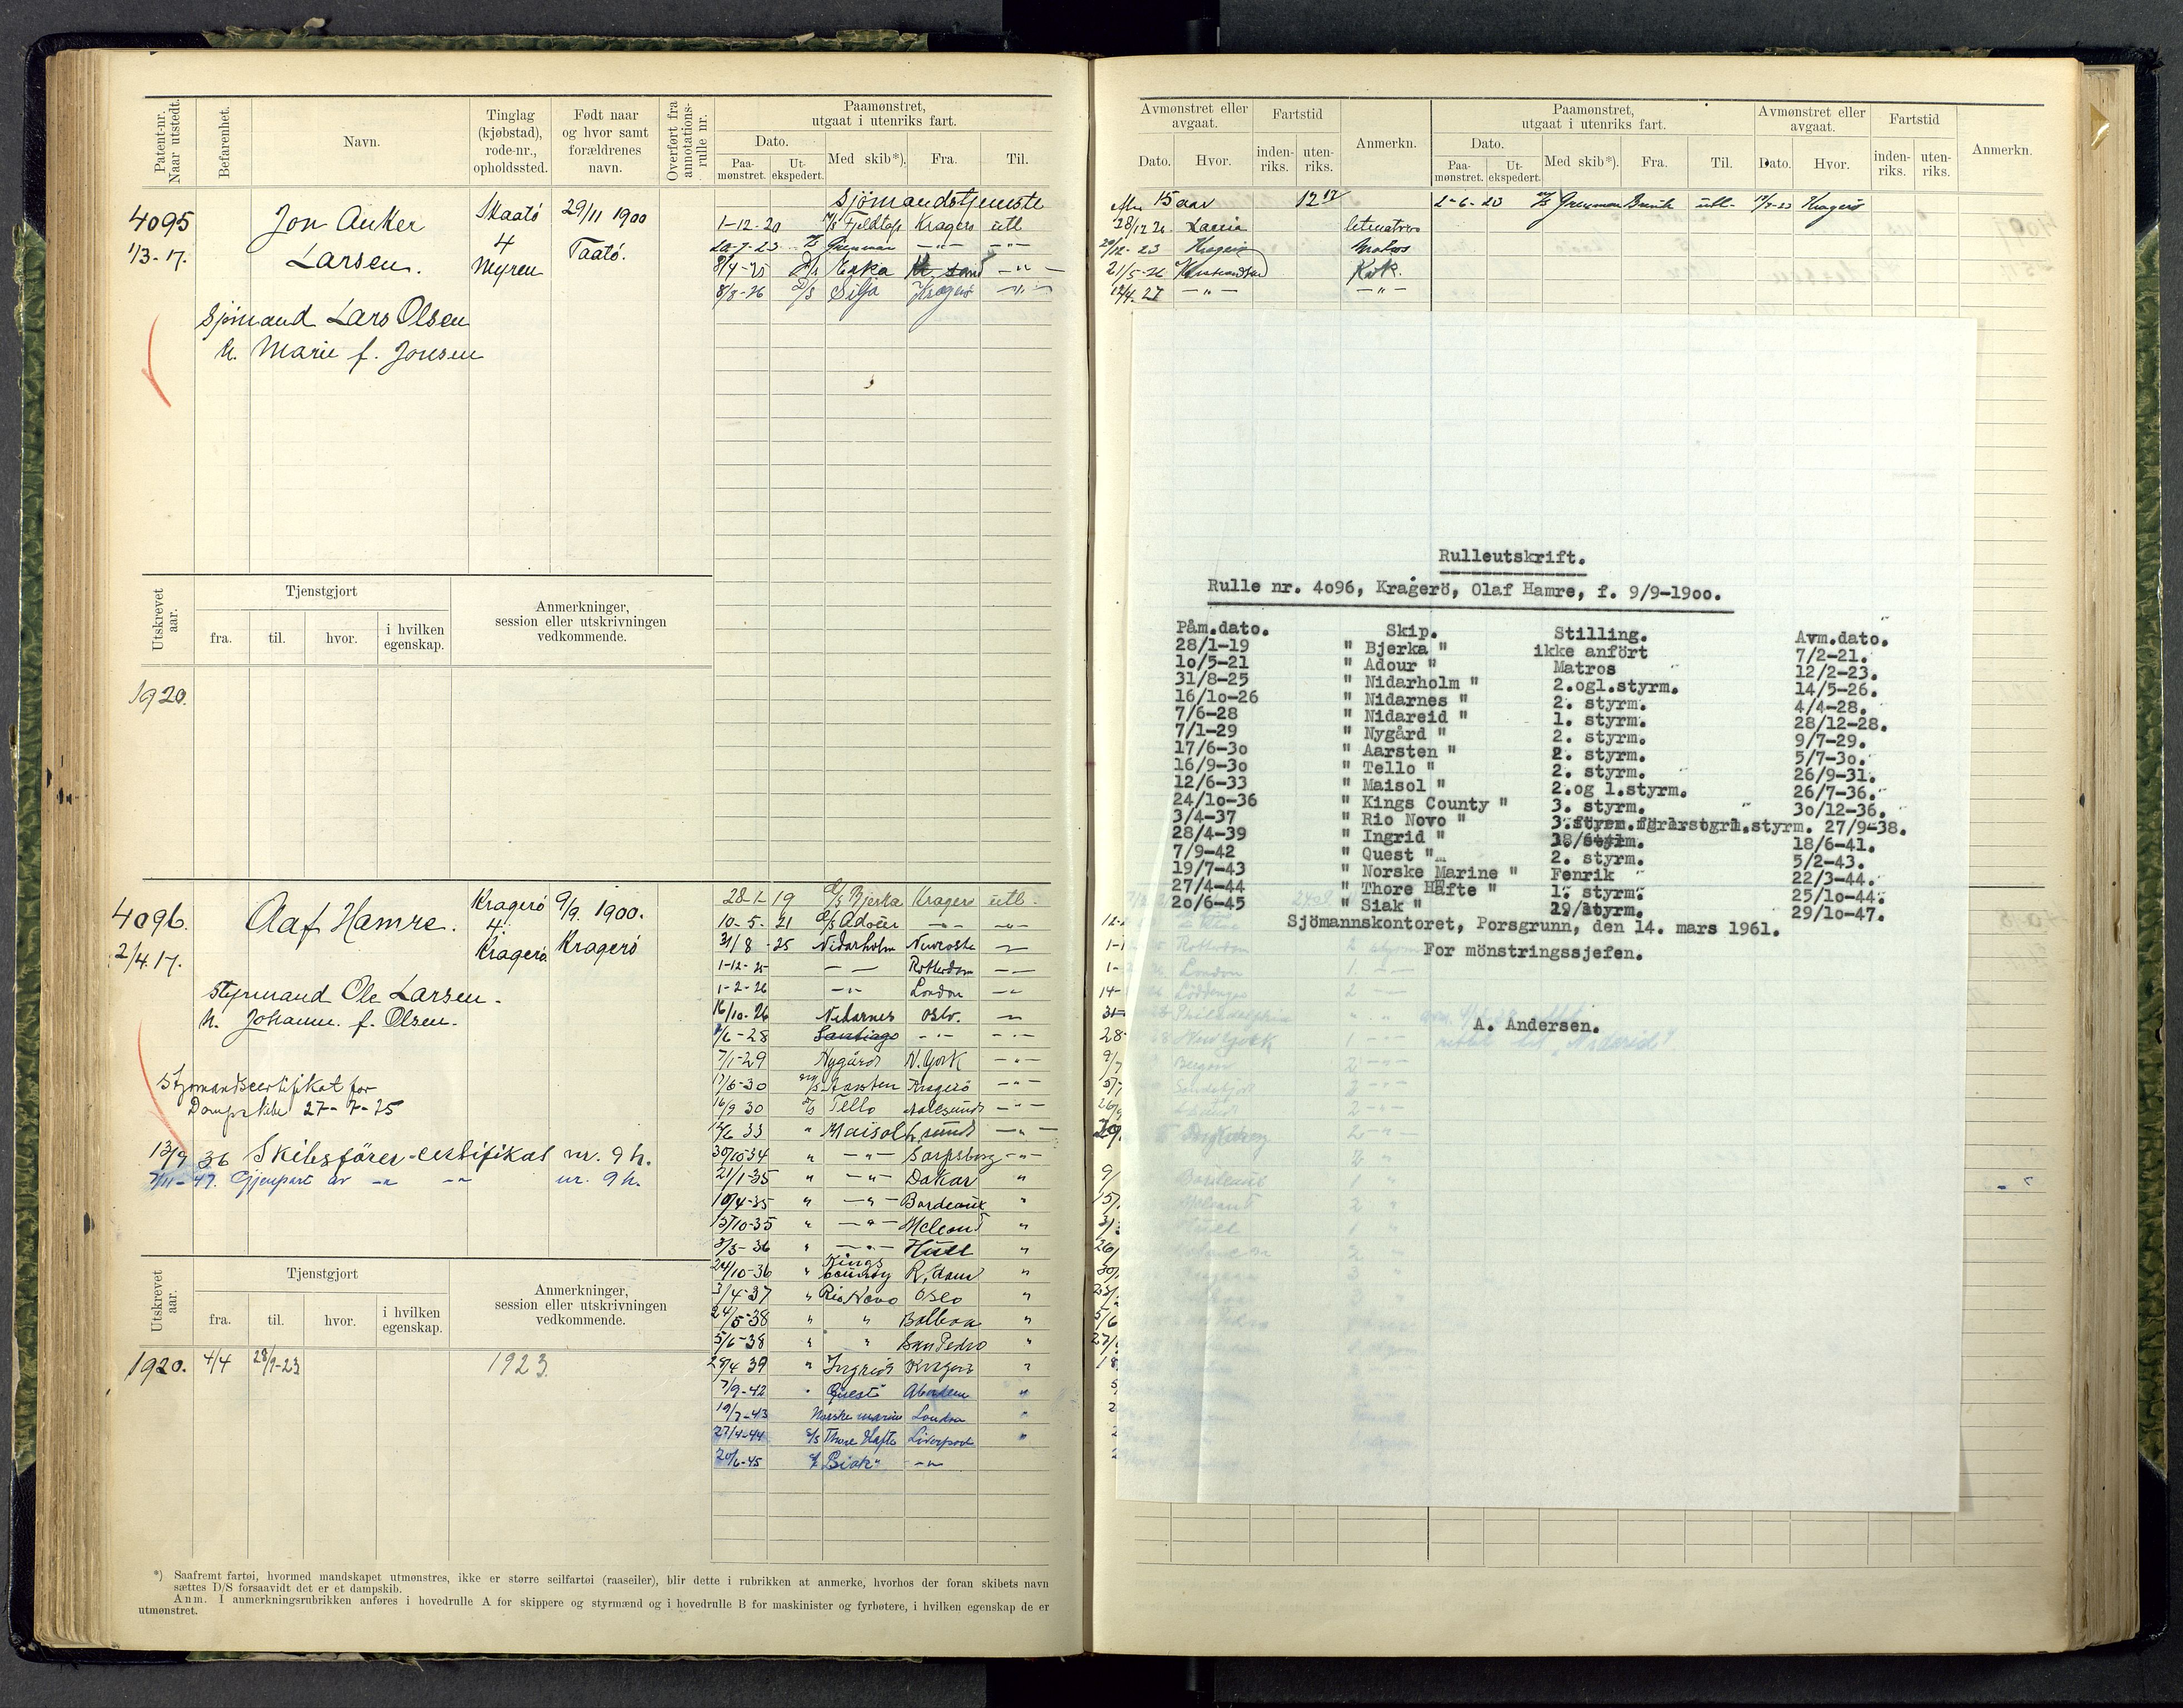 Patent-nr. Naar utstedt.
Befarenhet.
Navn.
Tinglag (kjøbstad), rode-nr., opholdssted.
Født naar og hvor samt forældrenes navn.
Overført fra annotations-rulle nr.
Paamønstret, utgaat i utenriks fart.
Dato.
Paa-mønstret.
Ut-ekspedert.
Med skib*).
Fra.
Til.
4095
1/3-17.
Jon Anker
Larsen.
Skaatö
4
Myren
29/11 1900
Taatö.
Sjömand Lars Olsen
h. Marie f. Jonsen
Sjömandstjeneste
1-12-20 Fjeldtop Kragerö utl
20-7-23 Grenmar -"- -"-
8/4-25 Erka -"-
8/3-26 D/S Silja Kragerö -"-
Utskrevet aar.
Tjenstgjort
fra.
til.
hvor.
i hvilken egenskap.
Anmerkninger, session eller utskrivningen vedkommende.
1920.
4096.
2/4.17.
Olaf Hamre.
Kragerö
4.
Kragerö
9/9. 1900.
Kragerö
Styrmand Ole Larsen.
h. Johanne. f. Olsen.
Styrmandscertifikat for
Dampskibe 27-7-25
13/9 36 Skibsfører-certifikat nr. 9 h.
7/11-47. Gjenpart av -"- -"- nr. 9 h.
28-1-19 D/S Bjerka Kragerö utl.
10-5-21 D/S Adour -"- -"-
31/8-25 Nidarholm
1-12-25 -"- Rotterdam -"-
1-2-26 -"- London -"-
16/10-26 Nidarnes Oslo. -"-
7/6-28 Santiago -"- -"-
7/1-29 Nygård N. York -"-
17/6-30 Aarsten Kragerö -"-
16/9 30 D/S Tello Aalesund -"-
12/6 33 " Maisol -"-
30/10 34 " -"- Sarpsborg -"-
21/1-35 " -"- Dakar "
10/4-35 " -"- Bordeaux "
15/10-35 " -"-
3/3-36 " -"- Hull "
24/10-36 " Kings County R.dam "
3/4-37 " Rio Novo Oslo "
24/5-38 " " Balboa "
5/6-38 " " San Pedro "
28/4 39 " Ingrid Kragerö "
7/9-42 " Quest Aberdeen "
19/7-43 Norske marine London "
27/4-44 D/S Thore Hafte Liverpool "
20/6-45 Siak" -"-
Utskrevet aar.
Tjenstgjort
fra.
til.
hvor.
i hvilken egenskap.
Anmerkninger, session eller utskrivningen vedkommende.
1920. 4/4 28/9-23 1923.
*) Saafremt fartøi, hvormed mandskapet utmønstres, ikke er større seilfartøi (raaseiler), blir dette i rubrikken at anmerke, hvorhos der foran skibets navn
sættes D/S forsaavidt det er et dampskib.
Anm. I anmerkningsrubrikken anføres i hovedrulle A for skippere og styrmænd og i hovedrulle B for maskinister og fyrbøtere, i hvilken egenskap de er
utmønstret.
Avmønstret eller avgaat.
Dato.
Hvor.
Fartstid
inden-riks.
uten-riks.
Anmerkn.
Paamønstret, utgaat i utenriks fart.
Dato.
Paa-mønstret.
Ut-ekspedert.
Med skib*).
Fra.
Til.
Avmønstret eller avgaat.
Dato.
Hvor.
Fartstid
inden-riks.
uten-riks.
Anmerkn.
15 aar
letmatros
20/12-23 Kragerö Matros
21/5-26 Kristiansand Kok.
12/4.27 -"- -"-
2-6-23 utl. Kragerö
Rulleutskrift.
Rulle nr. 4o96, Kragerö, Olaf Hamre, f. 9/9-19oo.
Påm.dato. Skip. Stilling. Avm.dato.
28/1-19 " Bjerka " ikke anfört 7/2-21.
1o/5-21 " Adour " Matros 12/2-23.
31/8-25 " Nidarholm " 2.ogl.styrm. 14/5-26.
16/1o-26 " Nidarnes " 2. styrm. 4/4-28.
7/6-28 " Nidareid " 1. styrm. 28/12-28.
7/1-29 " Nygård " 2. styrm. 9/7-29.
17/6-3o " Aarsten " 2. styrm. 5/7-3o.
16/9-3o " Tello " 2. styrm. 26/9-31.
12/6-33 " Maisol " 2.og l.styrm. 26/7-36.
24/1o-36 " Kings County " 3. styrm. 3o/12-36.
3/4-37 " Rio Novo " styrm. 27/9-38.
28/4-39 " Ingrid " 18/6-41.
7/9-42 " Quest " 2. styrm. 5/2-43.
19/7-43 " Norske Marine " Fenrik 22/3-44.
27/4-44 " Thore Hafte " 1. styrm. 25/1o-44.
2o/6-45 " Siak " 29/1o-47.
Sjömannskontoret, Porsgrunn, den 14. mars 1961.
For mönstringssjefen.
A. Andersen.